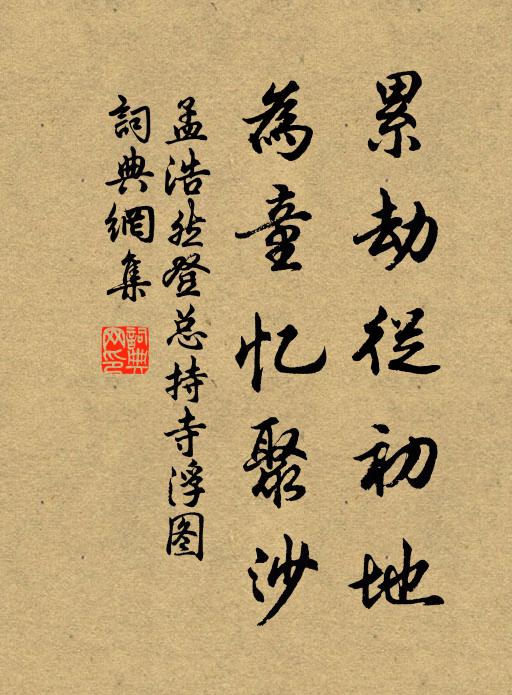 累劫從初地
為童忆聚沙
孟浩然登总持寺浮图
詞典網集
詞典網印